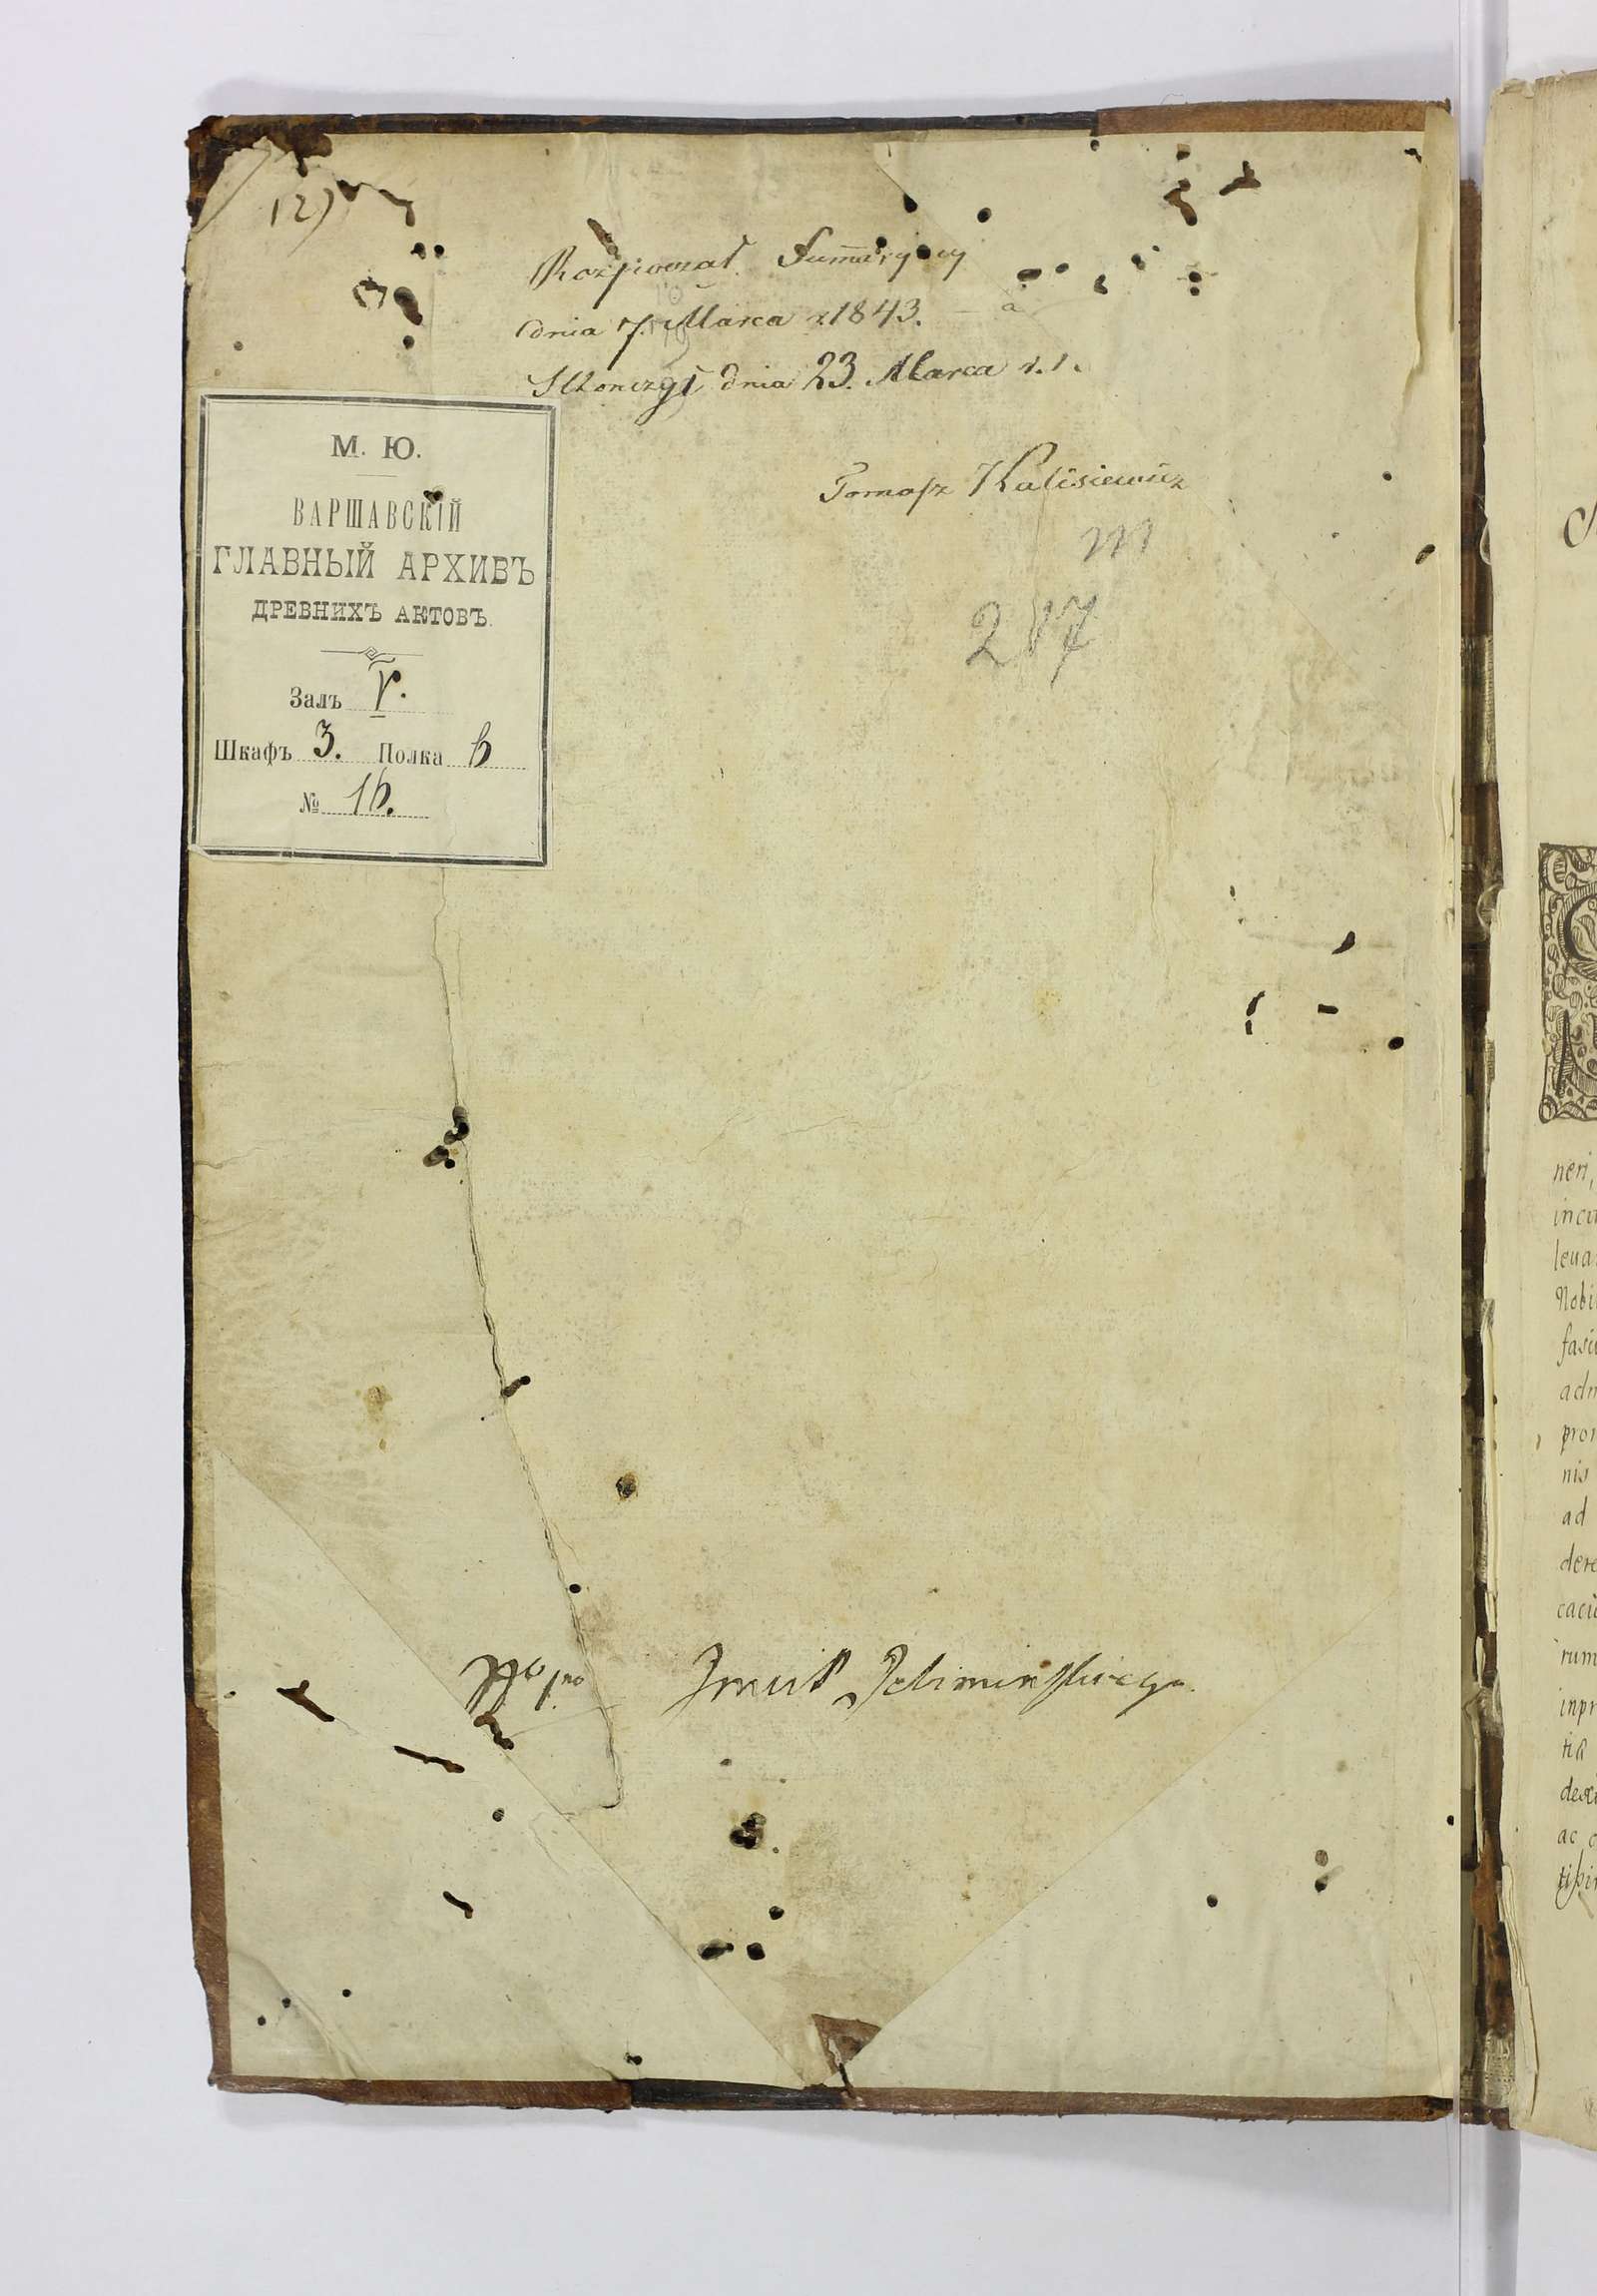 12)
Rozpoczął Sumaryusz
dnia 7. Marca r. 1843. — a
Skończył dnia 23. Marca r. t.
Tomasz Kalisiewicz
m
217
М. Ю.
ВАРШАВСКІЙ
ГЛАВНЫЙ АРХИВЪ
ДРЕВНИХЪ АКТОВЪ.
Залъ V.
Шкафъ 3. Полка b
№ 16.
neri,
incu
leua
Nobi
fasci
adm
pron
nis
ad
dere
caci
rum
inpr
tia
dexi
ac